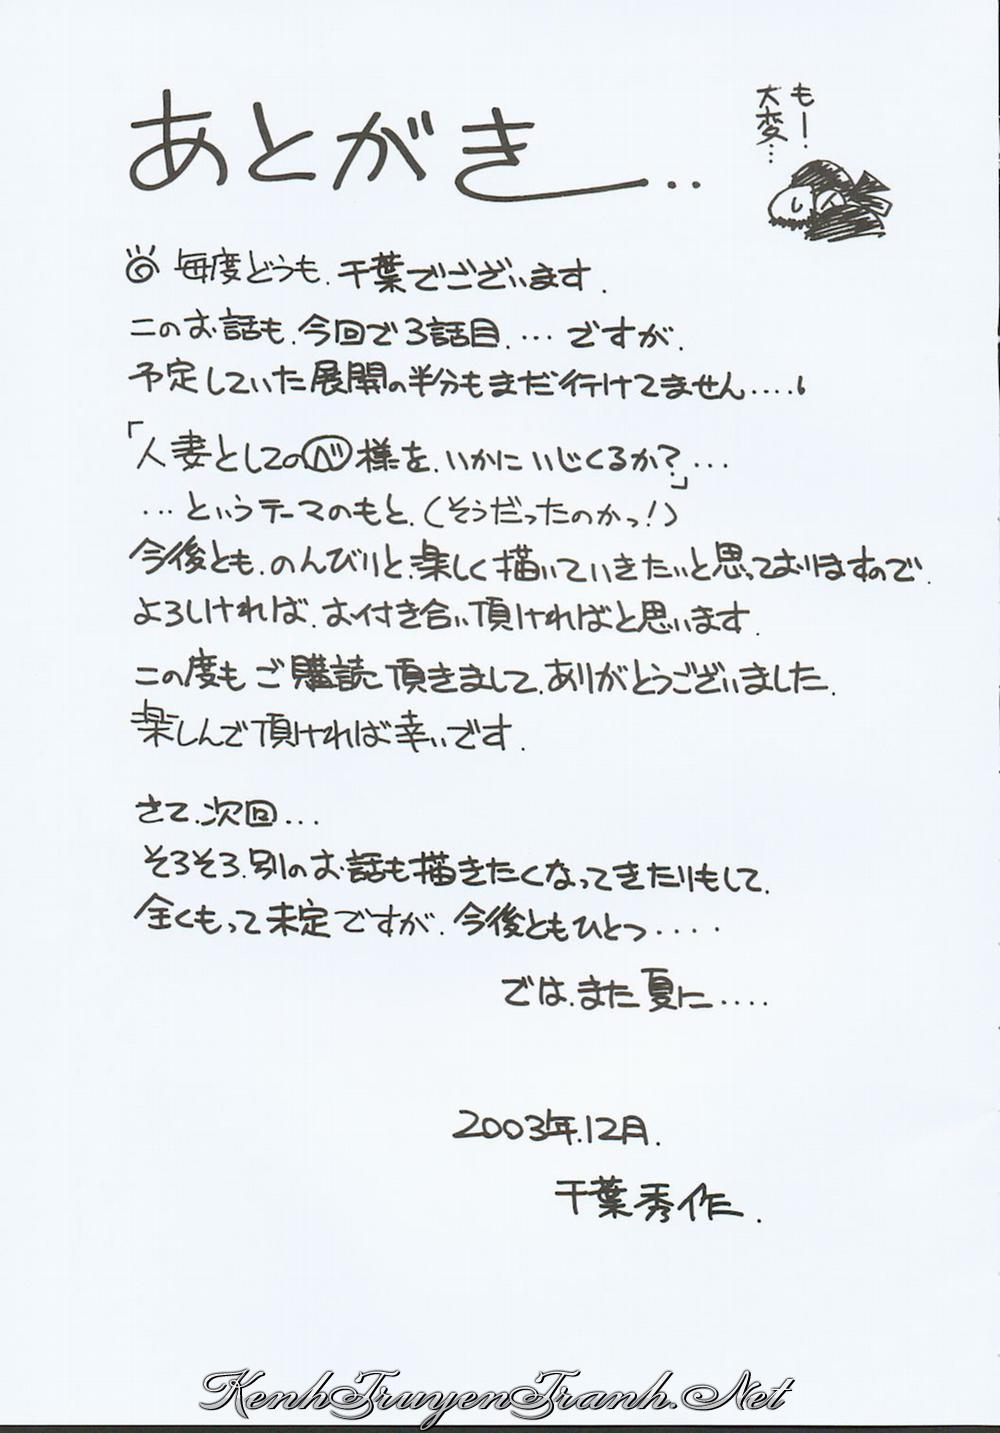 あとがき...
も一
大変…
毎度どうも、千葉でございます.
このお話も、今回で3話目.…ですが.
予定していた展開の半分もまだ行けてません....
「人妻としてのベ様を、いかにいじくるか?…」
…というテーマのもと、(そうだったのかっ!)
今後とも、のんびりと、楽しく描いていきたいと思っておりますので、
よろしければ、お付き合い頂ければと思います.
この度もご購読頂きまして、ありがとうございました.
楽しんで頂ければ幸いです.
さて、次回...
そろそろ、別のお話も描きたくなってきたりもして、
全くもって未定ですが、今後ともひとつ....
では、また夏に....
2003年.12月.
千葉秀作.
KenhTruyenTranh.Net